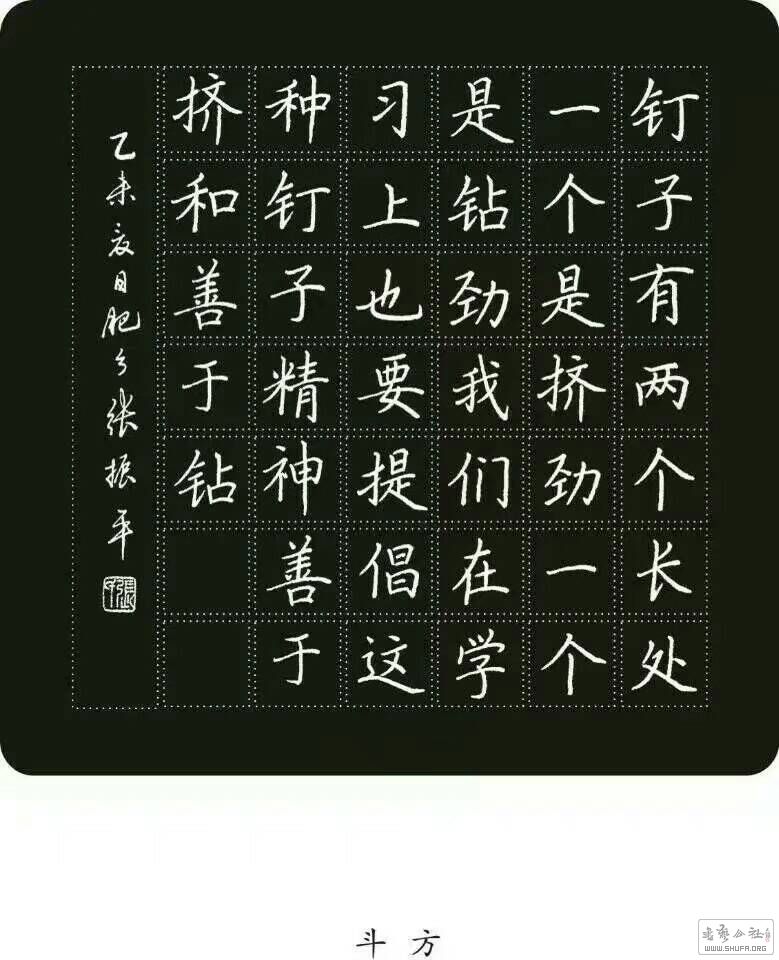 钉子有两个长处
一个是挤劲一个
是钻劲我们在学
习上也要提倡这
种钉子精神善于
挤和善于钻
乙未夏日肥乡张振平
斗方
书艺公社
WWW.SHUFA.ORG